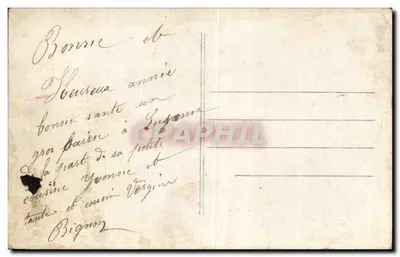 Bonne et
Heureux année
bonne santé un
gros baiser à Suzanne
de la part de sa petite
cousine Yvonne et
tante et cousin Virginie
Bignon
CPARPHIL